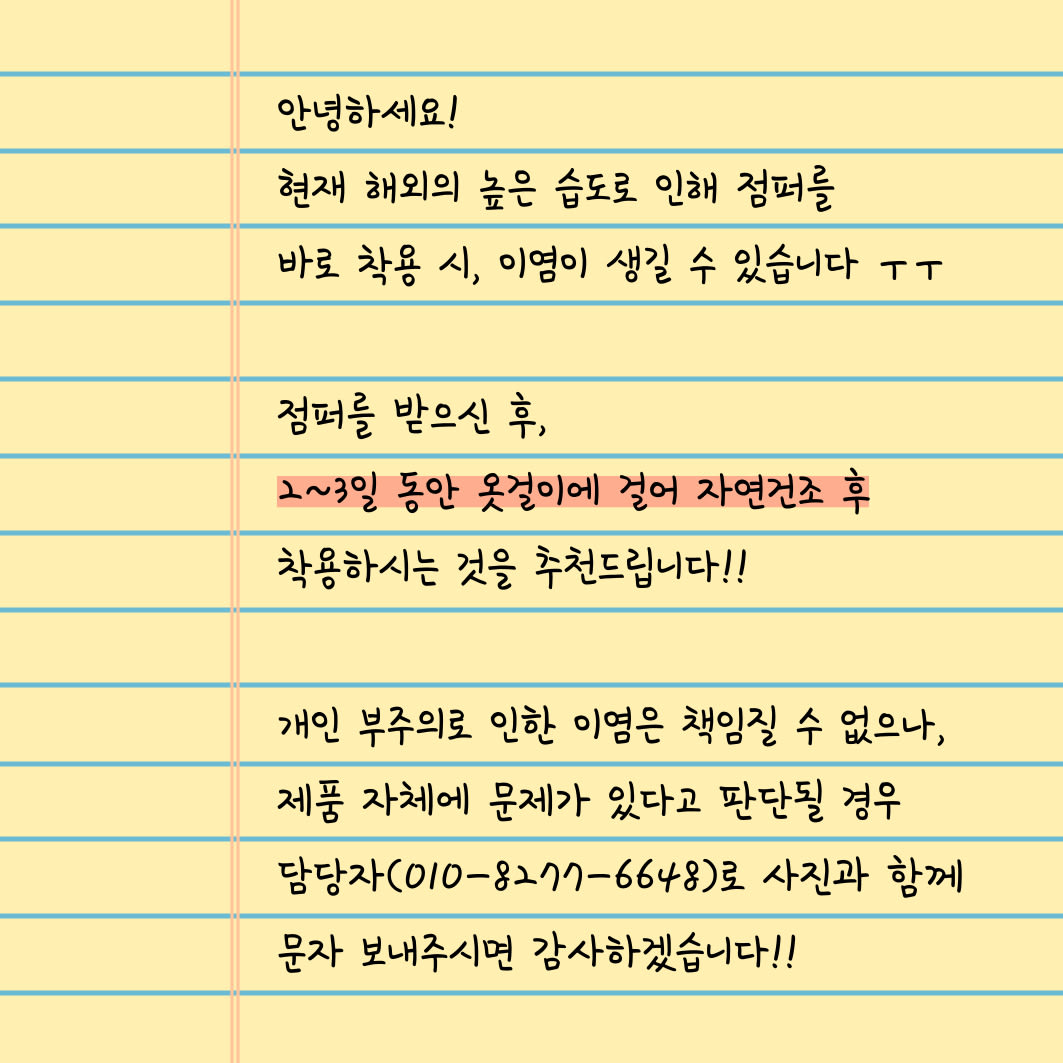 안녕하세요!
현재 해외의 높은 습도로 인해 점퍼를
바로 착용 시, 이염이 생길 수 있습니다 ㅜㅜ
점퍼를 받으신 후,
2~3일 동안 옷걸이에 걸어 자연건조 후
착용하시는 것을 추천드립니다!!
개인 부주의로 인한 이염은 책임질 수 없으나,
제품 자체에 문제가 있다고 판단될 경우
담당자(010-8277-6648)로 사진과 함께
문자 보내주시면 감사하겠습니다!!